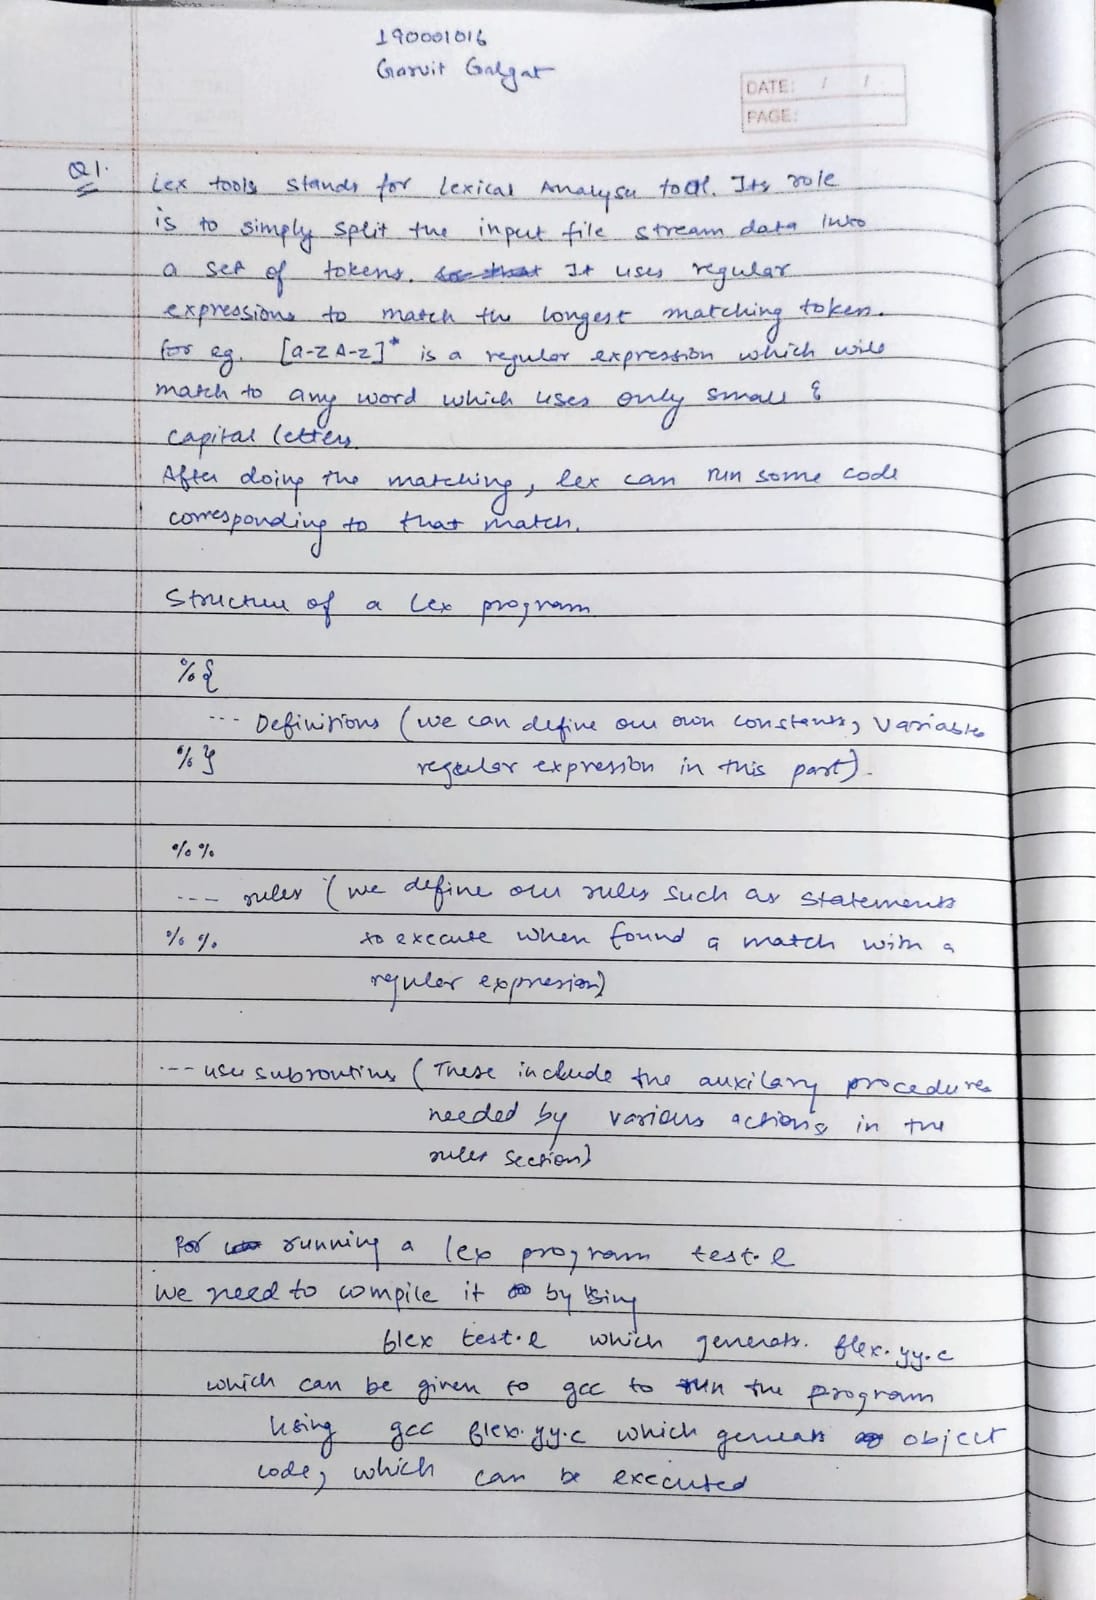 190001016
Garvit Galgat
DATE: / /
PAGE:
Q1.
Lex tools stands for Lexical Analyser tool. Its role
is to simply split the input file stream data into
a set of tokens. It uses regular
expressions to match the longest matching token.
for eg. [a-z A-Z]* is a regular expression which will
match to any word which uses only small &
capital letters.
After doing the matching, lex can run some code
corresponding to that match.
Structure of a Lex program
%{
--- Definitions (we can define our own constants, variables
%} regular expression in this part).
%%
--- rules (we define our rules such as statements
%% to execute when found a match with a
regular expression)
--- user subroutines (These include the auxilary procedures
needed by various actions in the
rules section)
For running a lex program test.l
We need to compile it by using
flex test.l which generats. flex.yy.c
which can be given to gcc to run the program
Using gcc flex.yy.c which generats object
code, which can be executed